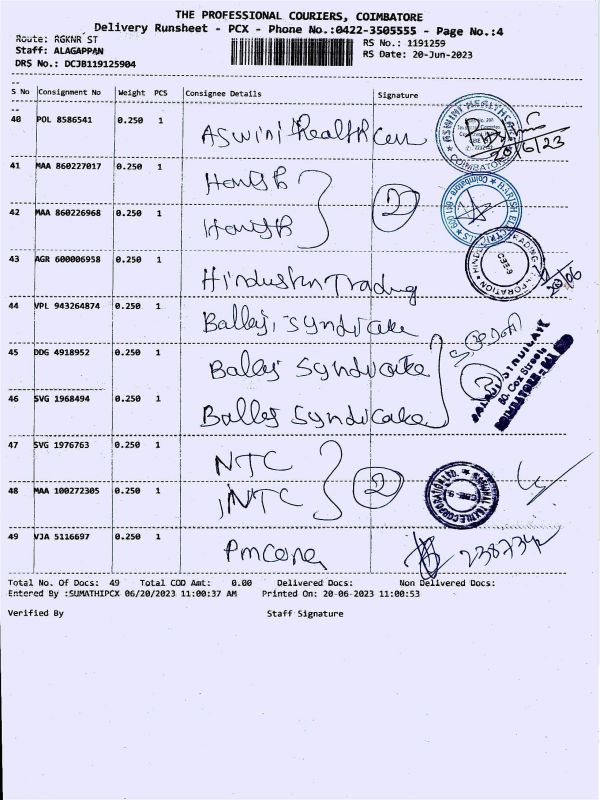 THE PROFESSIONAL COURIERS, COIMBATORE
Delivery Runsheet - PCX - Phone No.:0422-3505555 - Page No.:4
Route: RGKNR ST
RS No.: 1191259
Staff: ALAGAPPAN
RS Date: 20-Jun-2023
DRS No.: DCJB119125904
S No Consignment No Weight PCS Consignee Details Signature
40 POL 8586541 0.250 1 Aswini Health Care
20/6/23
41 MAA 860227017 0.250 1
42 MAA 860226968 0.250 1
2
43 AGR 600006958 0.250 1 Hindustan Trading
20/06
44 VPL 943264874 0.250 1 Ballej, Syndicate
45 DDG 4918952 0.250 1 Ballej Syndicate
3
46 SVG 1968494 0.250 1 Ballej Syndicate
47 SVG 1976763 0.250 1 NTC
48 MAA 100272305 0.250 1 NTC
2
49 VJA 5116697 0.250 1
Total No. Of Docs: 49 Total COD Amt: 0.00 Delivered Docs: Non Delivered Docs:
Entered By :SUMATHIPCX 06/20/2023 11:00:37 AM Printed On: 20-06-2023 11:00:53
Verified By Staff Signature